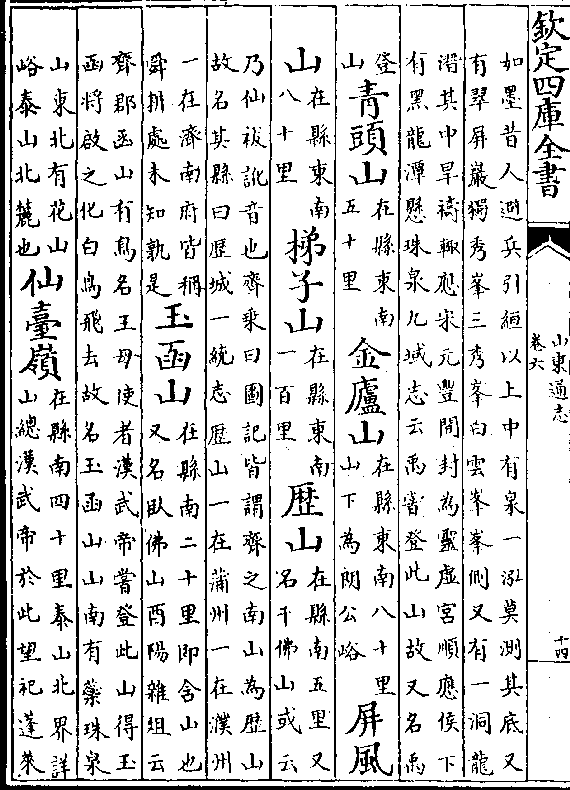 欽定四庫全書
山東通志
卷六
十四
如墨昔人避兵引絙以上中有泉一泓莫測其底又
有翠屏巖獨秀峯三秀峯白雲峯峯側又有一洞龍
潛其中旱禱輙應宋元豐間封為聖虛宮順應侯下
有黑龍潭懸珠泉九域志云禹嘗登此山故又名禹
登山 青頭山 在縣東南五十里 金廬山 在縣東南八十里山下為朗公峪 屏風
山 在縣東南八十里 梯子山 在縣東南一百里 歴山 在縣南五里又名千佛山或云
乃仙祓訛音也齊乗曰圖記皆謂齊之南山為歴山
故名其縣曰歴城一統志歴山一在蒲州一在濮州
一在濟南府皆稱舜耕處未知孰是 玉函山 在縣南二十里即舍山也又名臥佛山酉陽雜俎云
齊郡函山有鳥名王母使者漢武帝嘗登此山得玉
函將啟之化白鳥飛去故名玉函山山南有藥珠泉
山東北有花山峪泰山北麓也 仙臺嶺 在縣南四十里泰山北界詳山總漢武帝於此望祀蓬萊